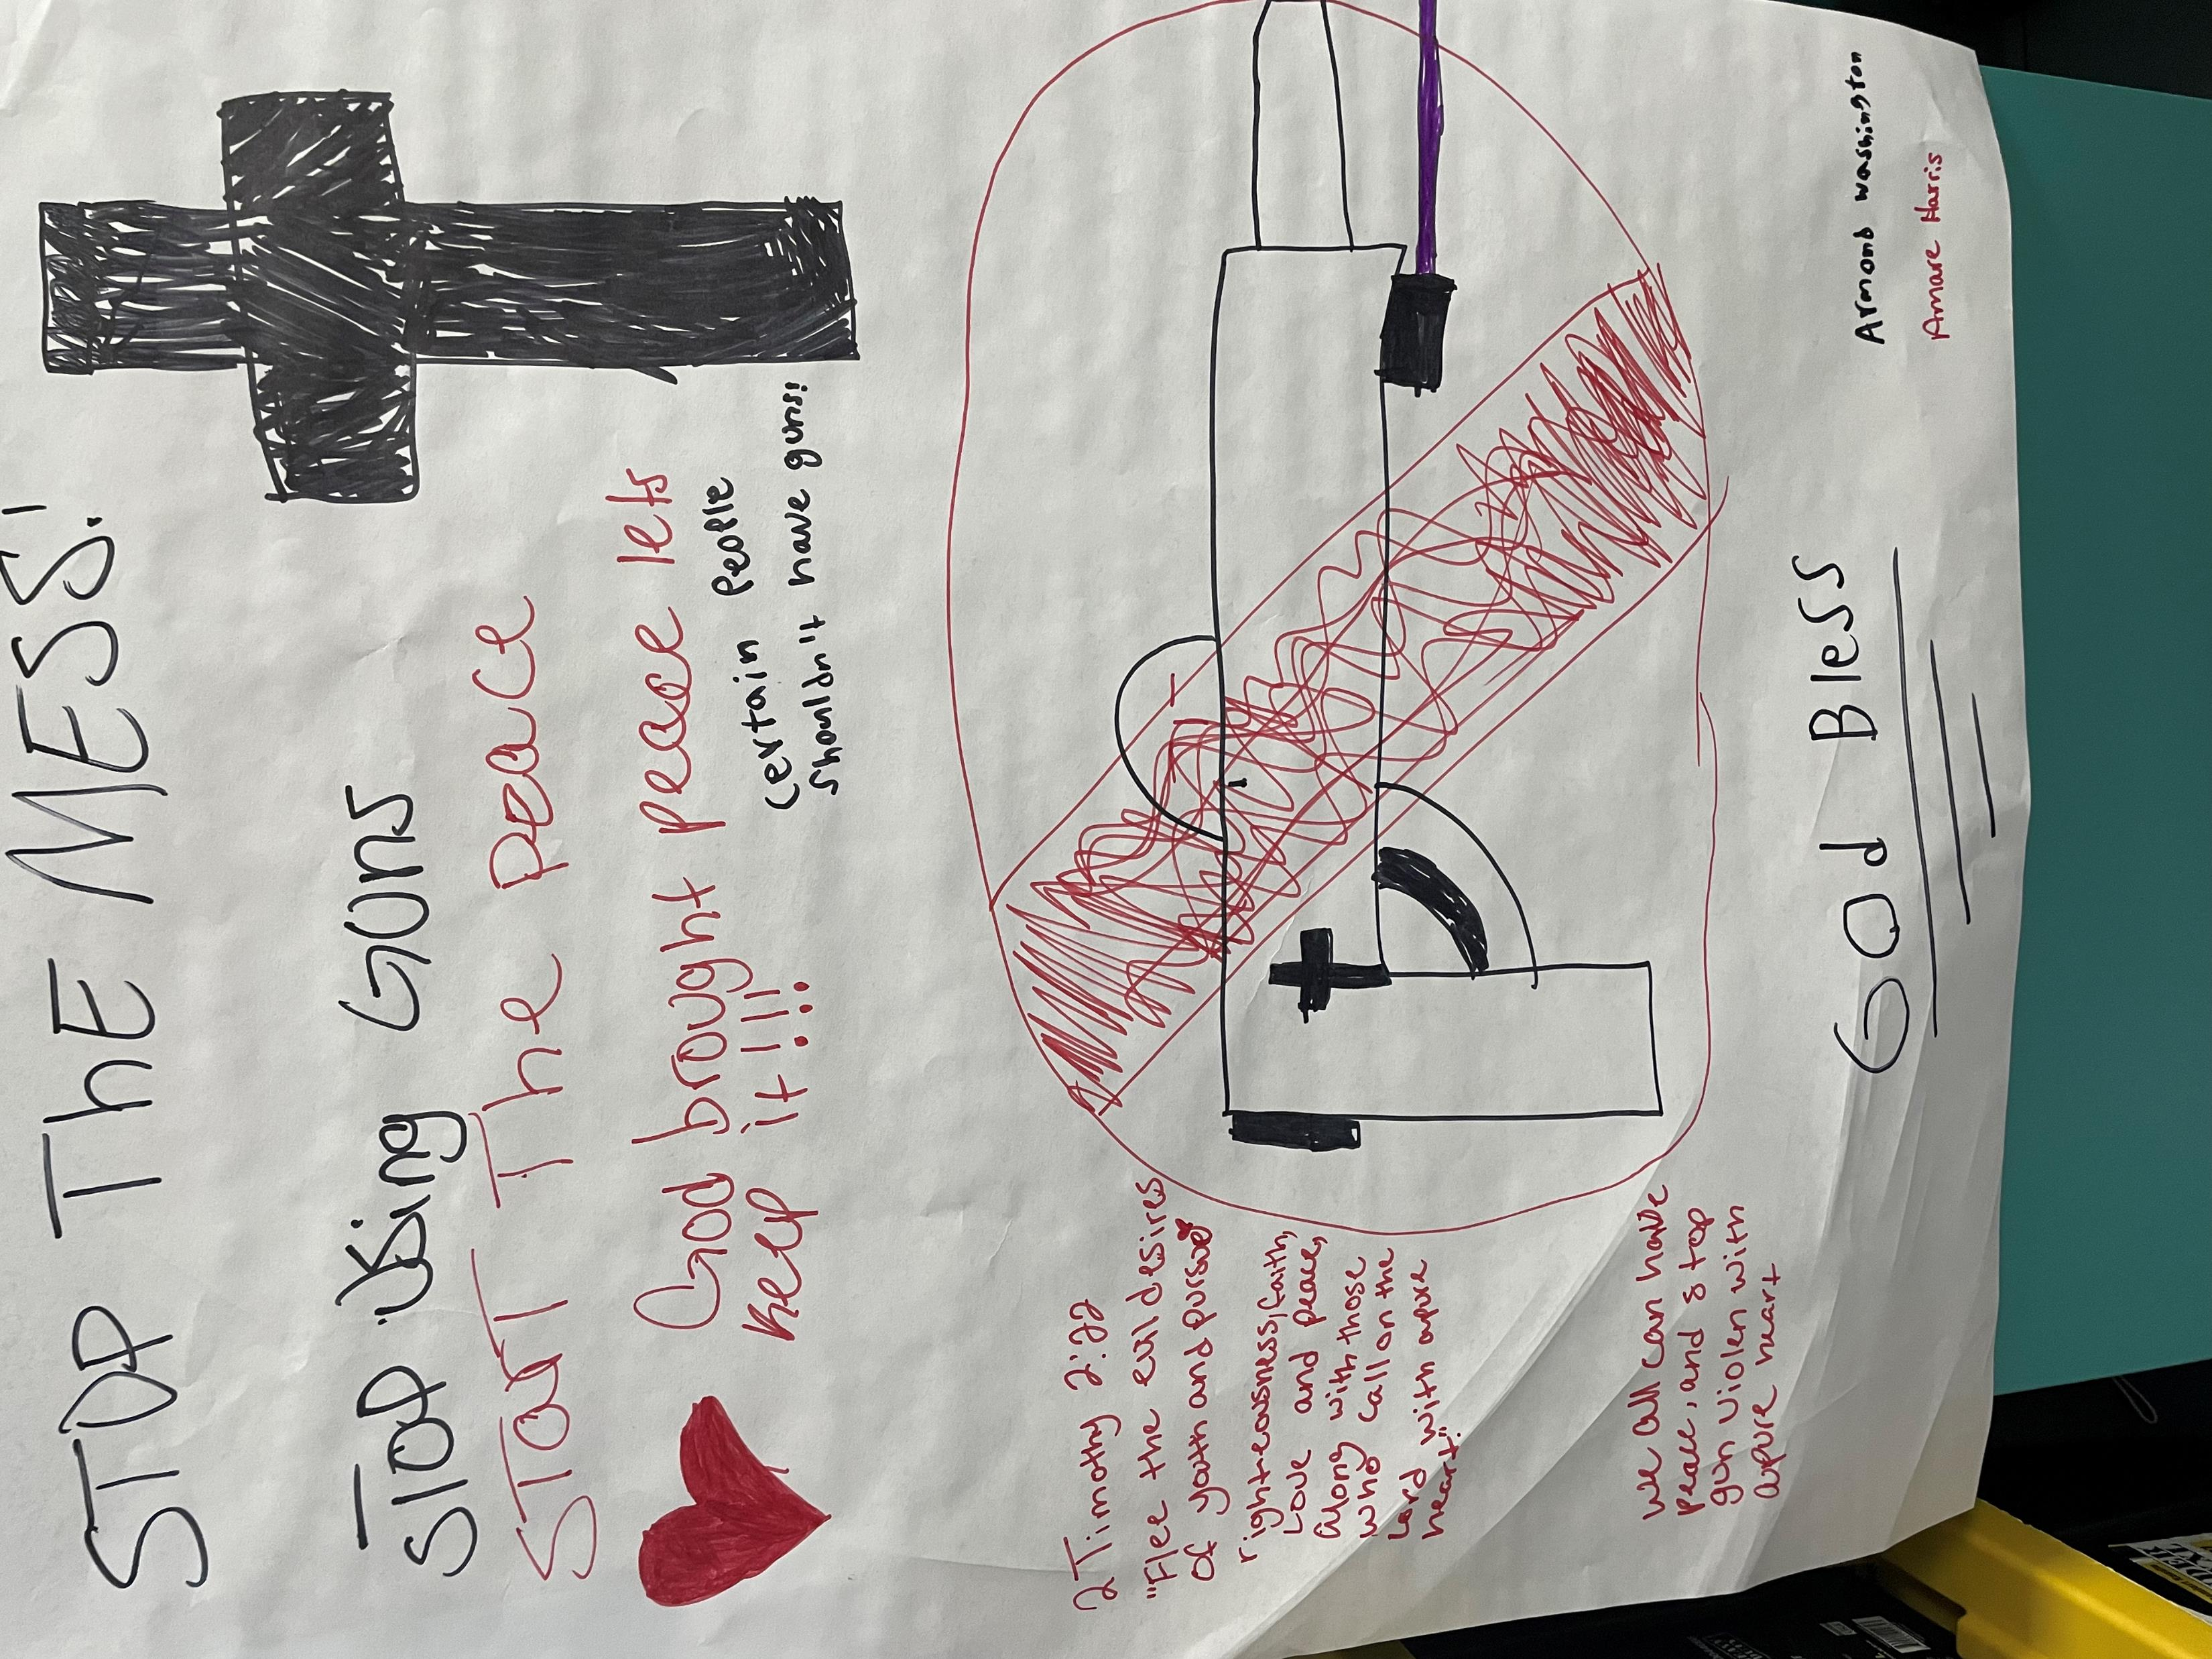 STOP ThE MESS!
STOP Using Guns
START The peace
God brought peace lets
keep it!!!!
Certain People
Shouldn't have guns!
2 Timothy 2:22
"Flee the evil desires
of youth and pursue
righteousness, faith,
Love and peace,
along with those
who call on the
Lord with apure
heart."
we all can have
peace, and stop
gun violen with
apure heart
God Bless
Armond Washington
Amare Harris